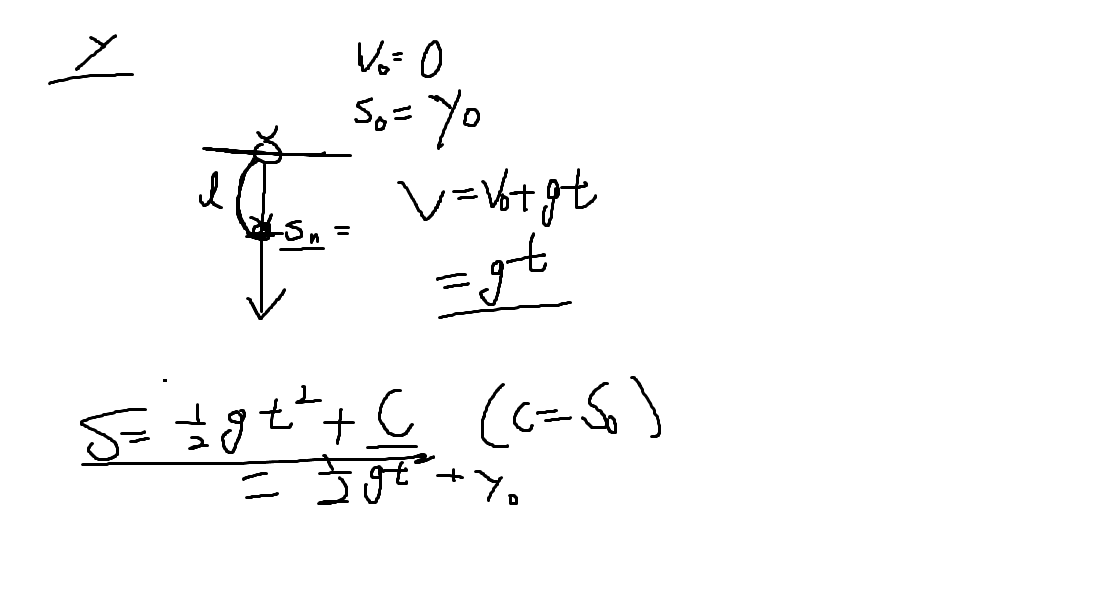 y
V₀ = 0
S₀ = y₀
l
Sₙ =
V = V₀ + gt
= gt
S = ½gt² + C (C = S₀)
= ½gt² + y₀